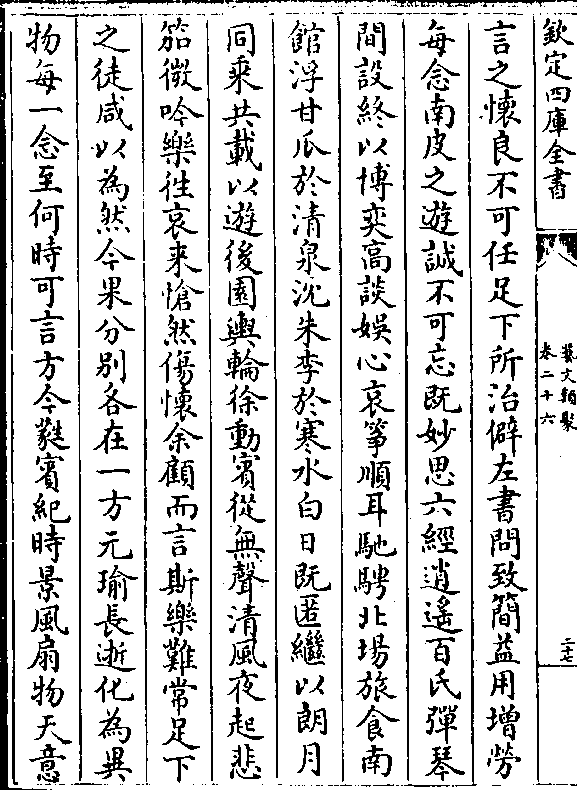 欽定四庫全書
藝文類聚
卷二十六
二十七
言之懷良不可任足下所治僻左書問致簡益用增勞
每念南皮之遊誠不可忘既妙思六經逍遙百氏彈琴
間設終以博奕高談娛心哀箏順耳馳騁北場旅食南
館浮甘瓜於清泉沈朱李於寒水白日既匿繼以朗月
同乘共載以遊後園輿輪徐動賓從無聲清風夜起悲
笳微吟樂徃哀来愴然傷懷余顧而言斯樂難常足下
之徒咸以為然今果分別各在一方元瑜長逝化為異
物每一念至何時可言方今蕤賓紀時景風扇物天意